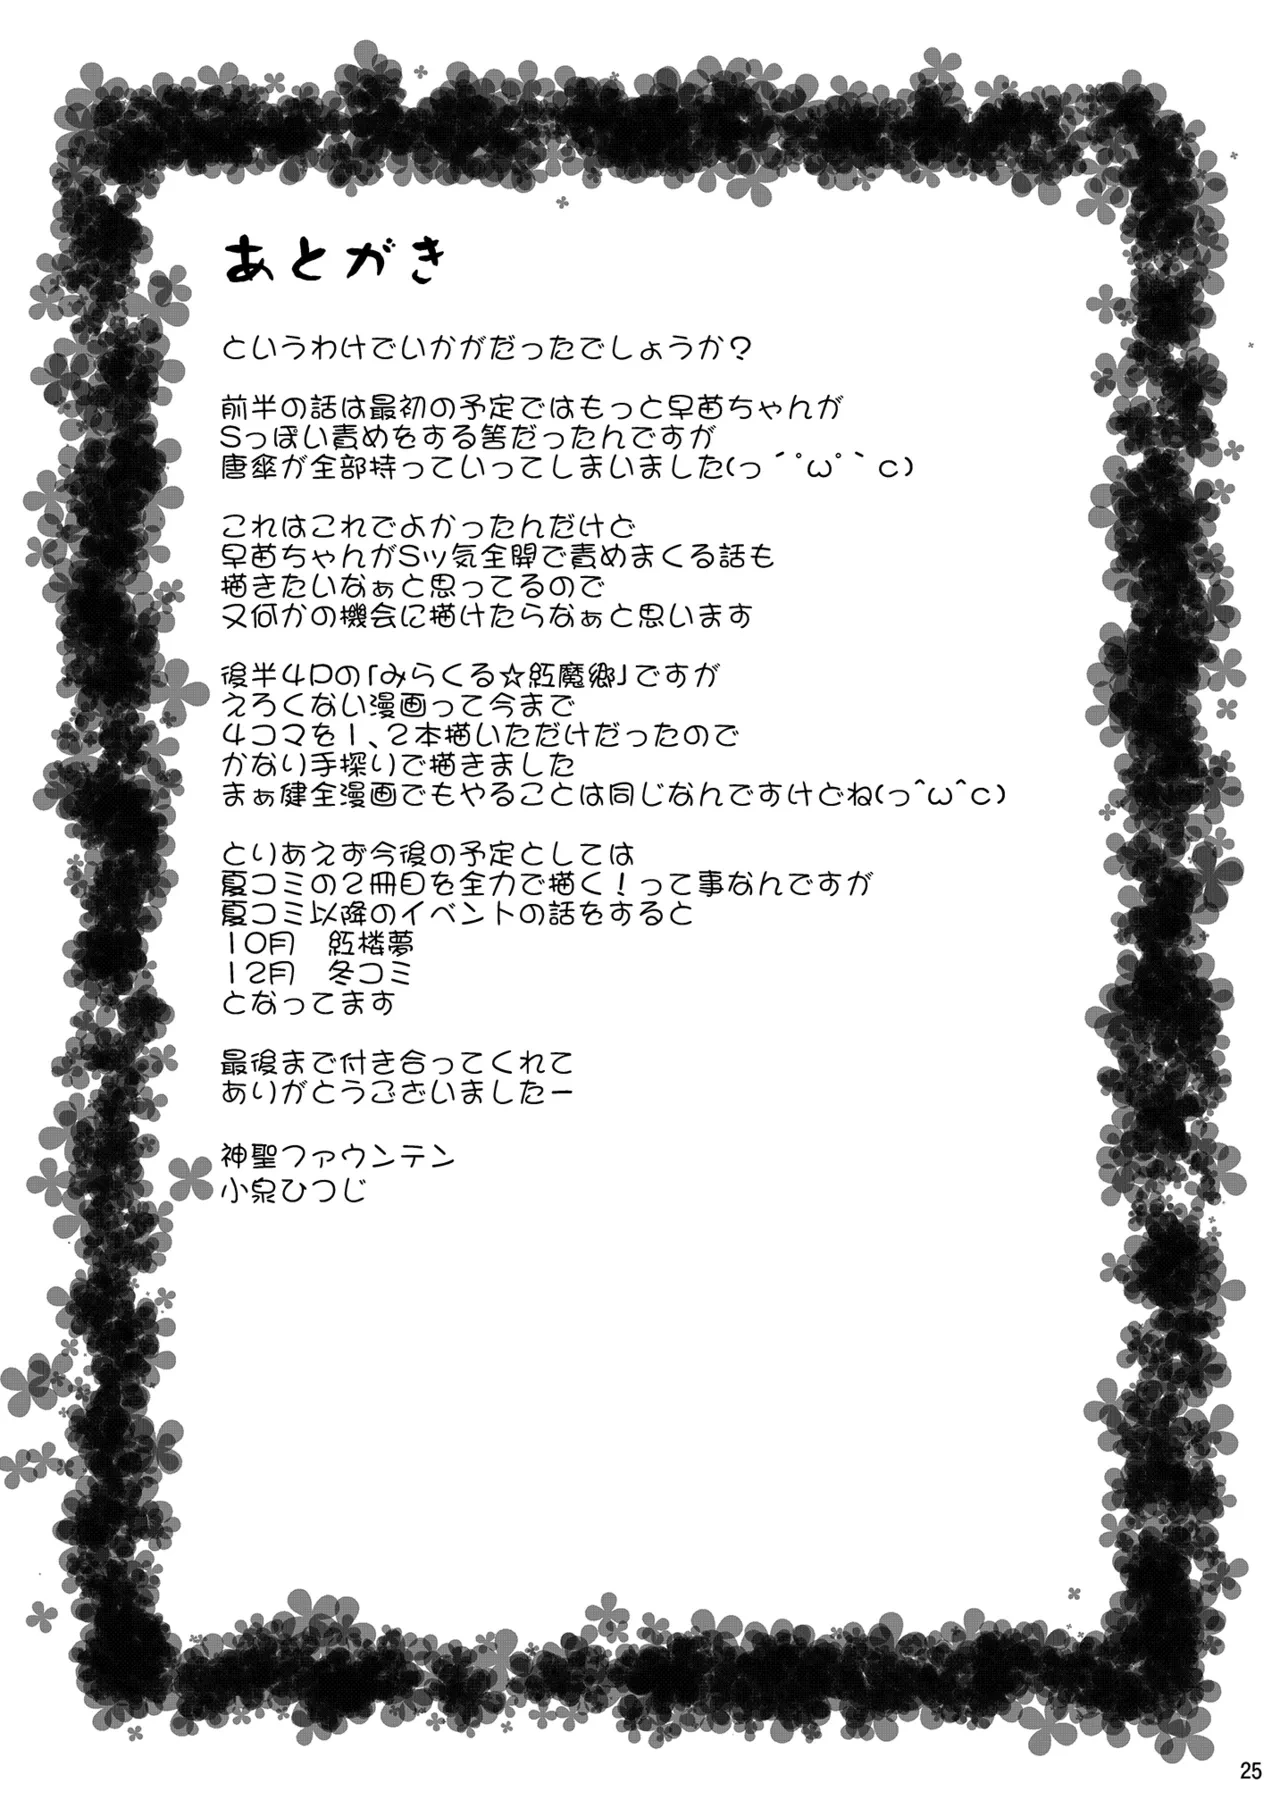 あとがき
というわけでいかがだったでしょうか？
前半の話は最初の予定ではもっと早苗ちゃんが
Sっぽい責めをする筈だったんですが
唐傘が全部持っていってしまいました(っ´ﾟωﾟ｀c)
これはこれでよかったんだけど
早苗ちゃんがSッ気全開で責めまくる話も
描きたいなぁと思ってるので
又何かの機会に描けたらなぁと思います
後半4Pの「みらくる☆紅魔郷」ですが
えろくない漫画って今まで
4コマを1、2本描いただけだったので
かなり手探りで描きました
まぁ健全漫画でもやることは同じなんですけどね(っ^ω^c)
とりあえず今後の予定としては
夏コミの2冊目を全力で描く！って事なんですが
夏コミ以降のイベントの話をすると
10月　紅楼夢
12月　冬コミ
となってます
最後まで付き合ってくれて
ありがとうございましたー
神聖ファウンテン
小泉ひつじ
25